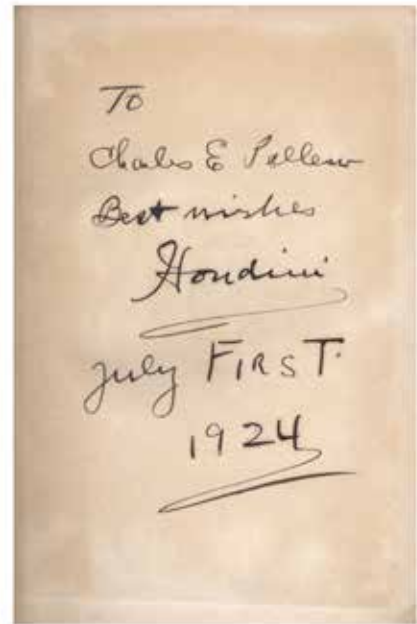 To
Charles E Pellew
Best wishes
Houdini
July FIRST.
1924